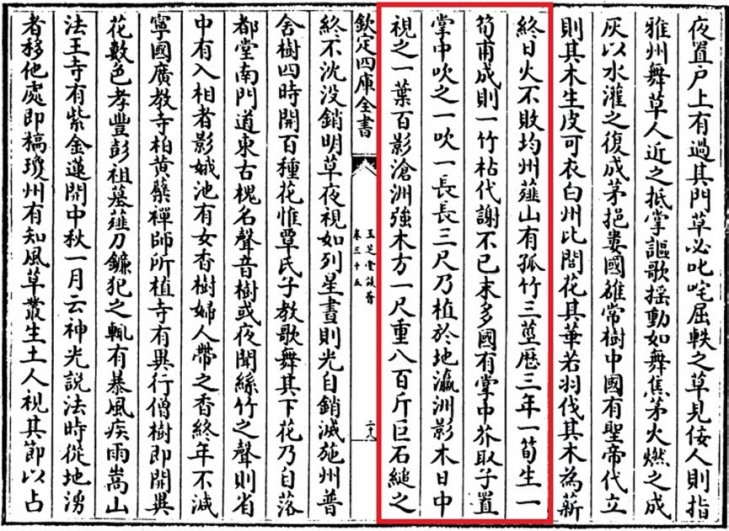 夜置戸上有過其門草必叱咤屈軼之草見佞人則指
雅州舞草人近之抵掌謳歌揺動如舞焦茅火燃之成
灰以水灌之復成茅挹婁國雒常樹中國有聖帝代立
則其木生皮可衣白州比閭花其華若羽伐其木為薪
終日火不敗均州薤山有孤竹三莖歴三年一筍生一
筍甫成則一竹枯代謝不已末多國有掌中芥取子置
掌中吹之一吹一長長三尺乃植於地瀛洲影木日中
視之一葉百影滄洲強木方一尺重八百斤巨石縋之
欽定四庫全書
玉芝堂談薈
卷三十五
終不沈没銷明草夜視如列星晝則光自銷滅施州普
舍樹四時開百種花惟覃氏子教歌舞其下花乃自落
都堂南門道東古槐名聲音樹或夜聞絲竹之聲則省
中有入相者影娥池有女香樹婦人帶之香終年不減
寧國廣教寺柏黄蘗禪師所植寺有異行僧樹即開異
花數色孝豐彭祖墓薤刀鐮犯之輒有暴風疾雨嵩山
法王寺有紫金蓮開中秋一月云神光説法時從地湧
者移他處即槁瓊州有知風草叢生土人視其節以占